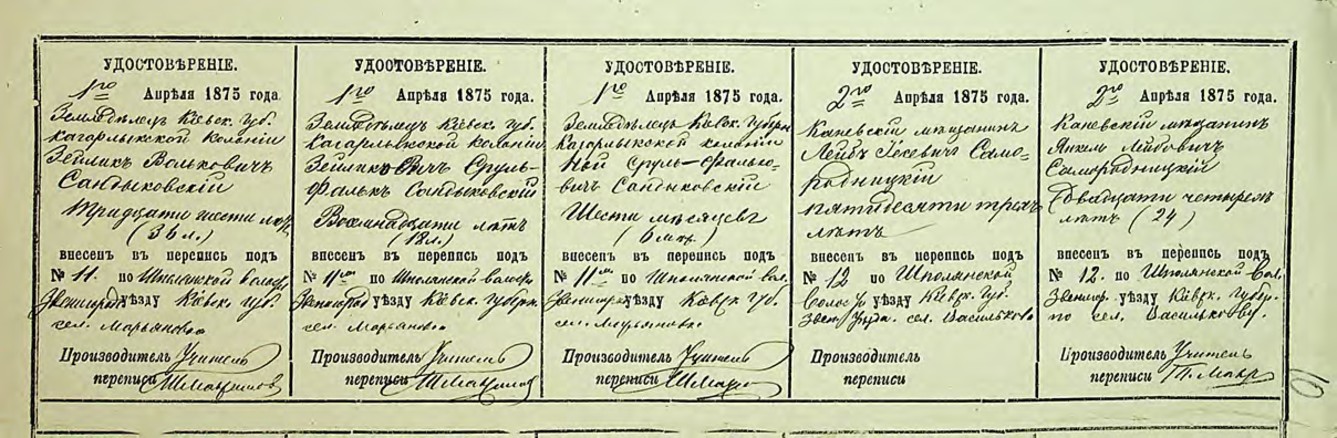 УДОСТОВѢРЕНІЕ.
1го Апрѣля 1875 года.
Земледѣлецъ Кіевск. Губ.
Кагарлыкской Колоніи
Зейликъ Волковичъ
Сандыковскій
Тридцати шести лѣтъ
(36 л.)
внесенъ въ перепись подъ
№ 11. по Шполянской волос
Звенигород уѣзду Кіевск. Губ.
сел. Марьяновка
Производитель Учитель
переписи
УДОСТОВѢРЕНІЕ.
1го Апрѣля 1875 года.
Земледѣлецъ Кіевск. Губ.
Кагарлыкской Колоніи
Сруль-
Фалькъ Сандыковскій
Восемнадцати лѣтъ
(18 л.)
внесенъ въ перепись подъ
№ 11 по Шполянской волости
уѣзду Кіевск. Губерн.
сел. Марьяновка
Производитель Учитель
переписи
УДОСТОВѢРЕНІЕ.
1го Апрѣля 1875 года.
Земледѣлецъ Кіевск. Губерн
Кагарлыкской колоніи
Сруль-Фалько-
вичъ Сандыковскій
Шести мѣсяцевъ
(6 мѣс.)
внесенъ въ перепись подъ
№ 11 по Шполянской вол.
уѣзду Кіевск. Губ.
сел. Марьяновк.
Производитель Учитель
переписи
УДОСТОВѢРЕНІЕ.
2го Апрѣля 1875 года.
Каневскій мѣщанинъ
Лейбъ Само-
родницкій
пятидесяти трехъ
лѣтъ
внесенъ въ перепись подъ
№ 12 по Шполянской
Волос уѣзду Кіевск. Губ.
Звен. сел. Васильково
Производитель
переписи
УДОСТОВѢРЕНІЕ.
2го Апрѣля 1875 года.
Каневскій мѣщанинъ
Янкель Лейбовичъ
Самородницкій
Двадцати четырехъ
лѣтъ (24)
внесенъ въ перепись подъ
№ 12. по Шполянской Вол.
Звениг. уѣзду Кіевск. Губер.
по сел. Василькову.
Производитель Учитель
переписи